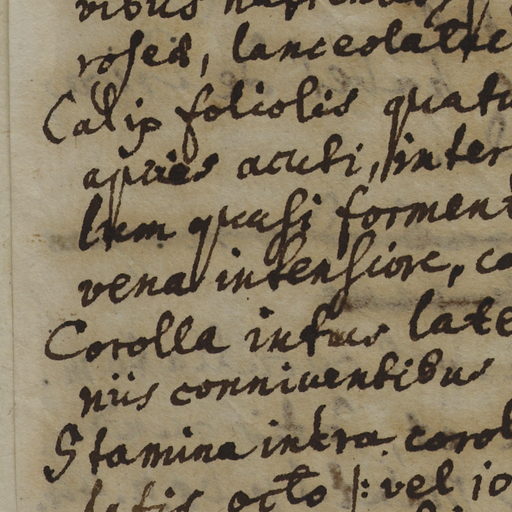 roseis, lanceolatae
Calix foliolis quatu
apices acuti, inter
lum quasi forment
vena intensiore, co
Corolla intus late
niis conniventibus
Stamina intra corol
octo |: vel io